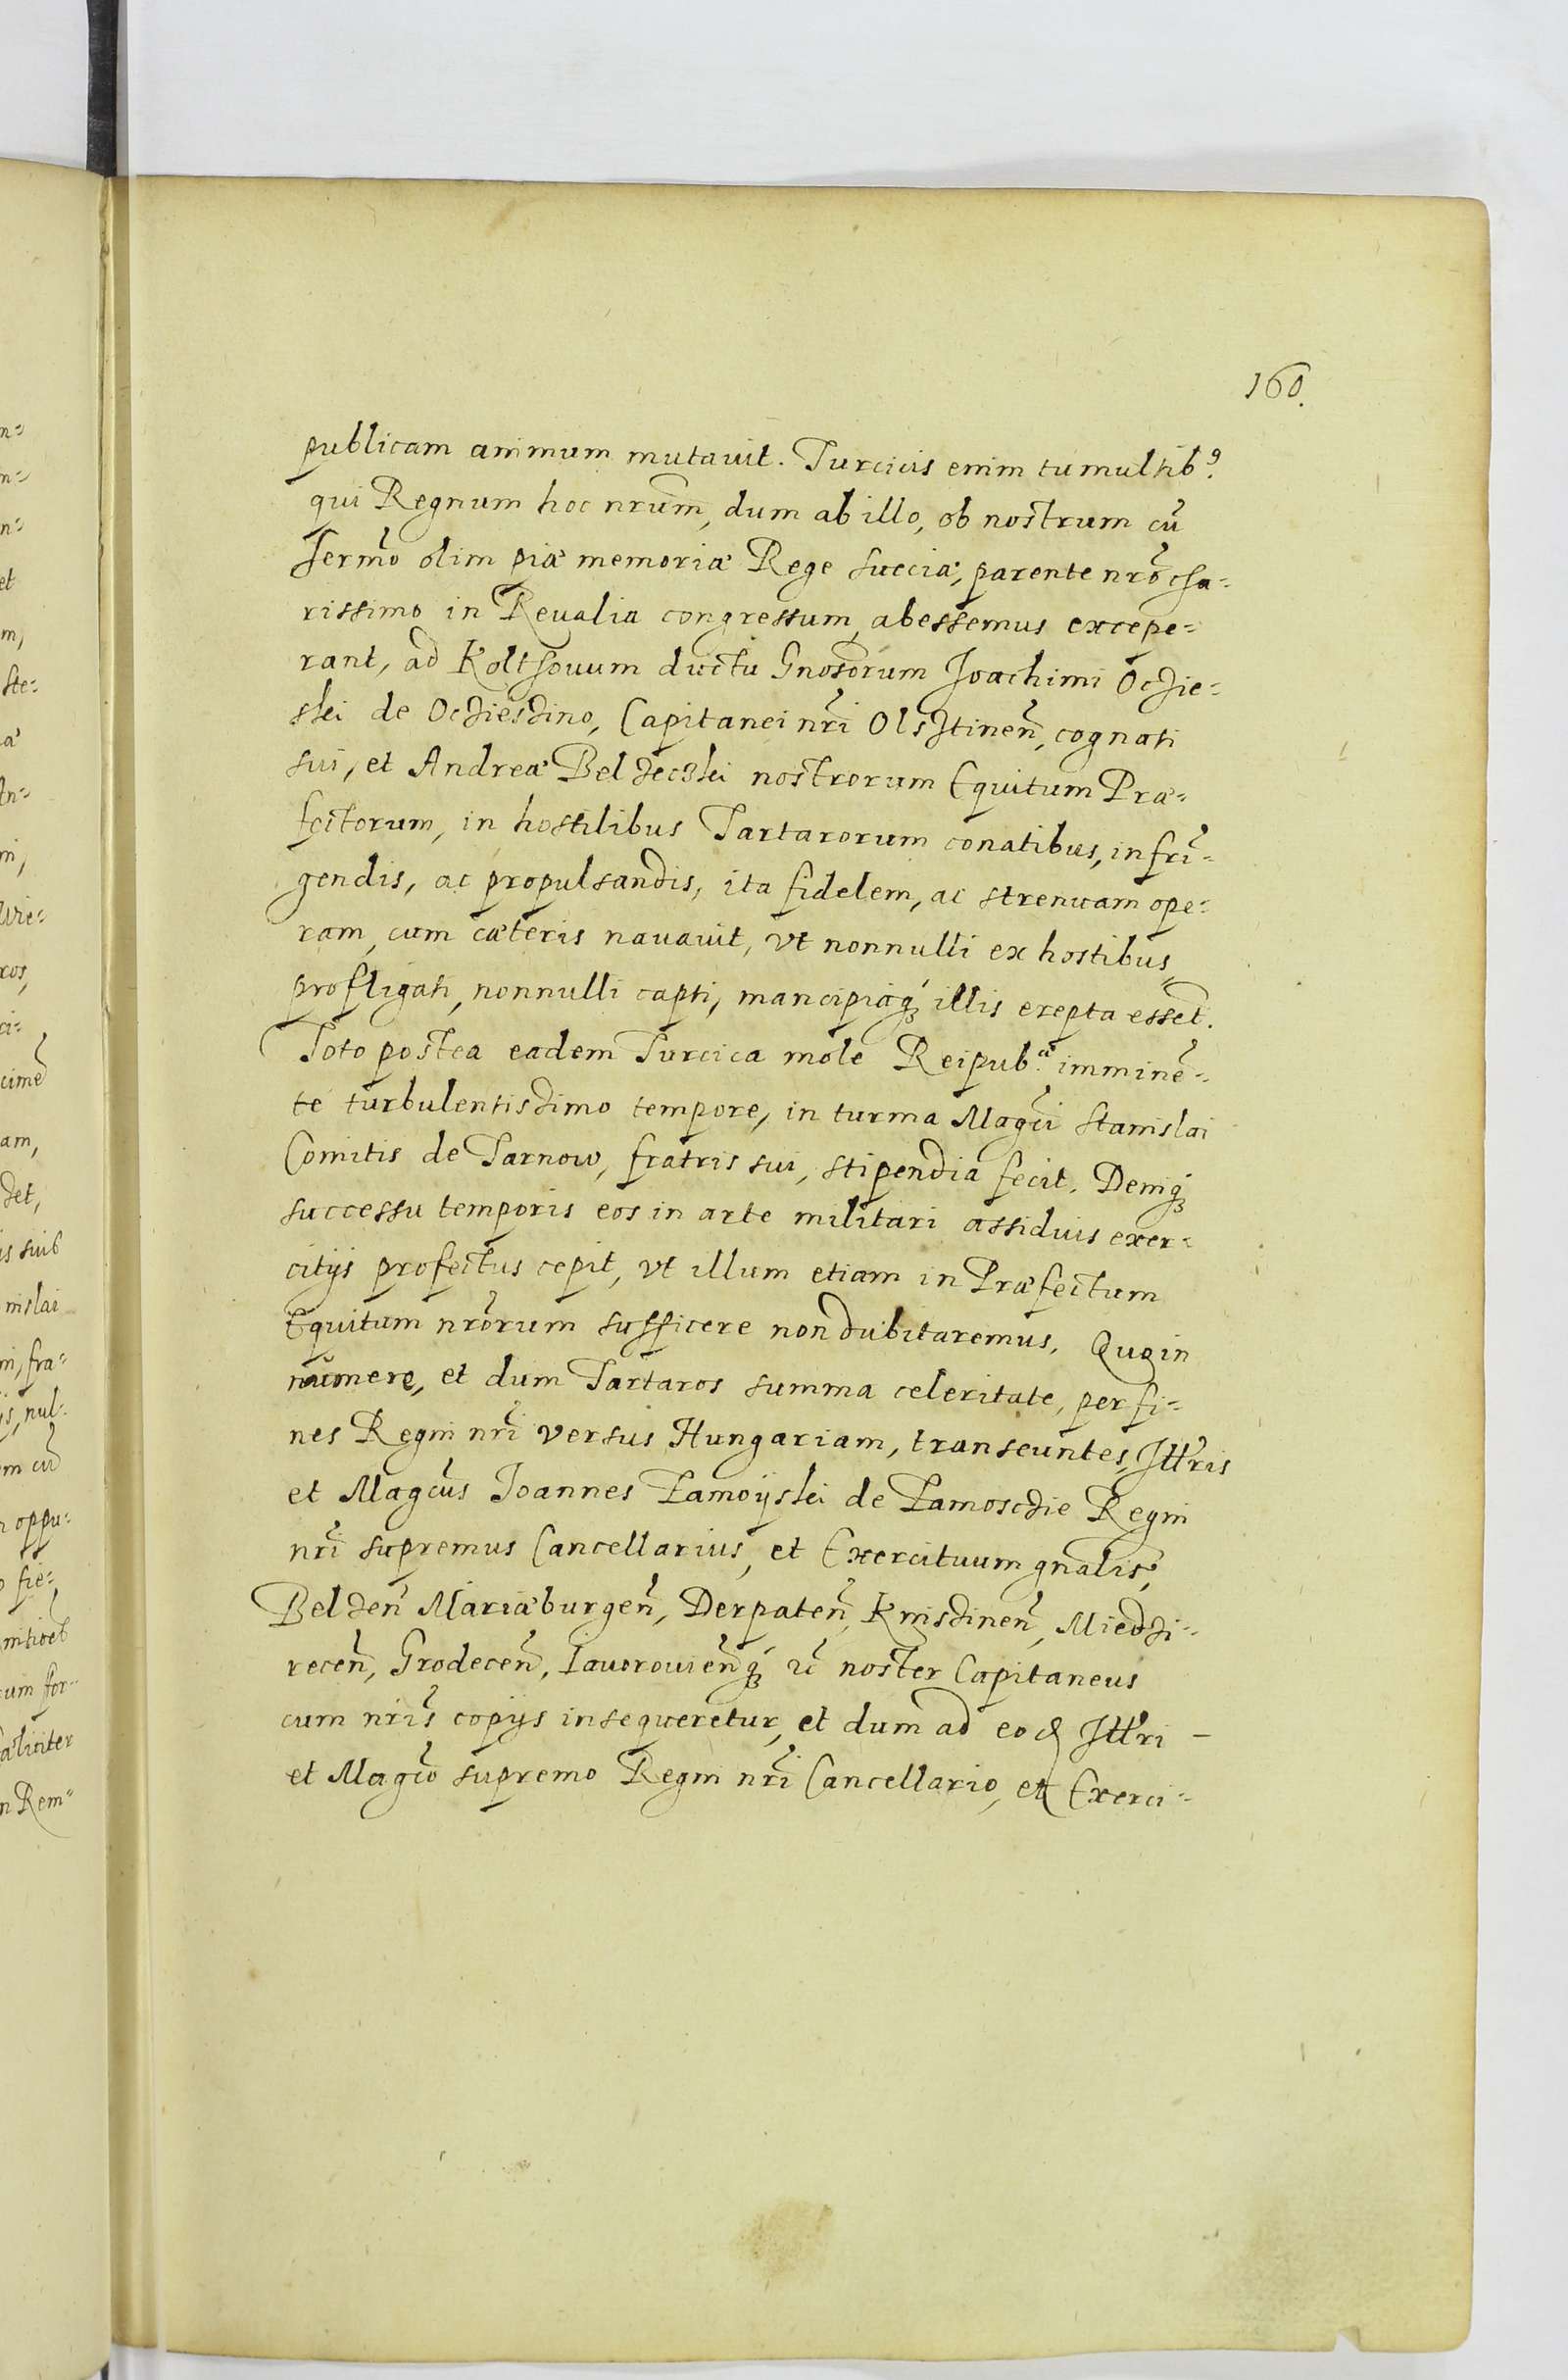 160.
publicam animum mutauit. Turcicis enim tumultib⁹.
qui Regnum hoc nrũm, dum ab illo, ob nostrum cũ
Sermõ olim piæ memoriæ Rege Sueciæ, parente nrõ cha-
rissimo in Reualia congressum, abessemus excepe-
rant, ad Koltsouum ductu Gnosorum Joachimi Oczie-
slei de Oczieszino, Capitanei nrĩ Olsztineñ, cognati
sui, et Andreæ Belzecslei nostrorum Equitum Præ-
fectorum, in hostilibus Tartarorum conatibus, infrĩ-
gendis, ac propulsandis, ita fidelem, ac strenuam ope-
ram, cum cæteris nauauit, vt nonnulli ex hostibus
profligati, nonnulli capti, mancipiaq́ꝫ illis erepta essẽt.
Toto postea eadem Turcica mole Reipub.ᶜᵃ imminẽ-
te turbulentiszimo tempore, in turma Magcĩ Stanislai
Comitis de Tarnow, fratris sui, stipendia fecit. Deniq́ꝫ
successu temporis eos in arte militari assiduis exer-
citÿs profectus cepit, vt illum etiam in Præfectum
Equitum nrõrum sufficere non dubitaremus. Quo in
munere, et dum Tartaros summa celeritate, per fi-
nes Regni nrĩ versus Hungariam, transeuntes, Jlłris
et Magcũs Joannes Zamoÿslei de Zamosczie Regni
nrĩ supremus Cancellarius, et Exercituum gnãlis,
Belzeñ Mariæburgeñ, Derpateñ, Knisdineñ, Miedzi-
receñ, Grodeceñ, Iauorouieñq́ꝫ ꝛc̃ noster Capitaneus
cum nrĩs copÿs insequeretur, et dum ad eod Jlłri
et Magcõ supremo Regni nrĩ Cancellario, et Exerci-